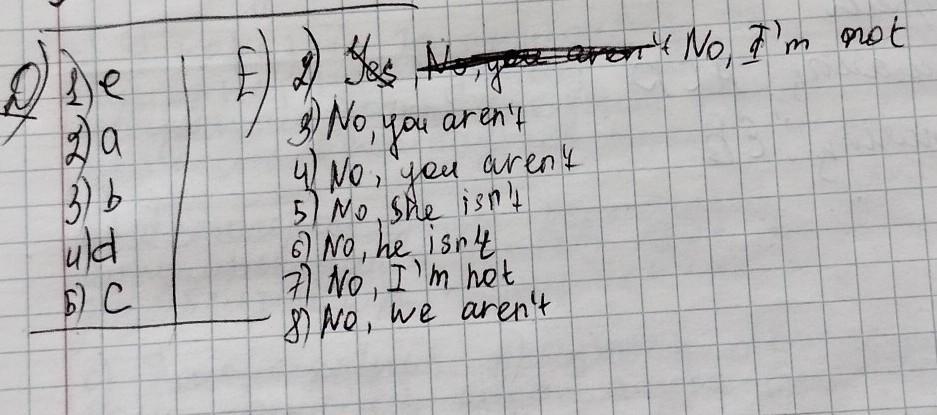 D) 1) e
2) a
3) b
4) d
5) c
E) 2) Yes, No, I'm not
3) No, you aren't
4) No, you aren't
5) No, she isn't
6) No, he isn't
7) No, I'm not
8) No, we aren't